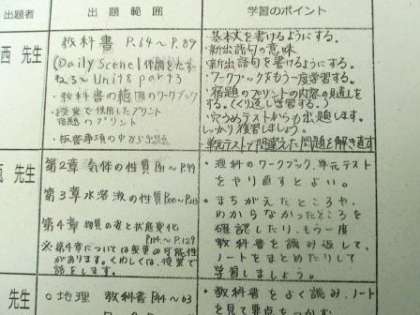 出題者 出題範囲 学習のポイント
西 先生
教科書 P.64〜P.89
(Daily Scene1 体調をたず
ねる〜 Unit8 part3
・教科書の範囲のワークブック
・授業で使用したプリント
宿題のプリント
・板書事項の中から出題
・基本文を書けるようにする。
・新出語句の意味
・新出語句を書けるようにする。
・ワークブックをもう一度学習する。
・宿題のプリントの内容の見直しを
する。(くり返し学習する)
・穴うめテストからも出題します。
しっかり復習しましょう。
・単元テストで間違えた問題を解き直す
先生
第2章 気体の性質
第3章 水溶液の性質
第4章 物質の姿と状態変化
〜P.129
※第4章については変更の可能性
があります。くわしくは、授業で
話をします。
・理科のワークブック、単元テスト
をやり直すとよい。
・まちがえたところや、
わからなかったところを
確認したり、もう一度
教科書を読み返して、
ノートをまとめたりして
学習しましょう。
先生
○地理 教科書 P.34〜63
・教科書をよく読み、ノート
を見て要点をつかむ